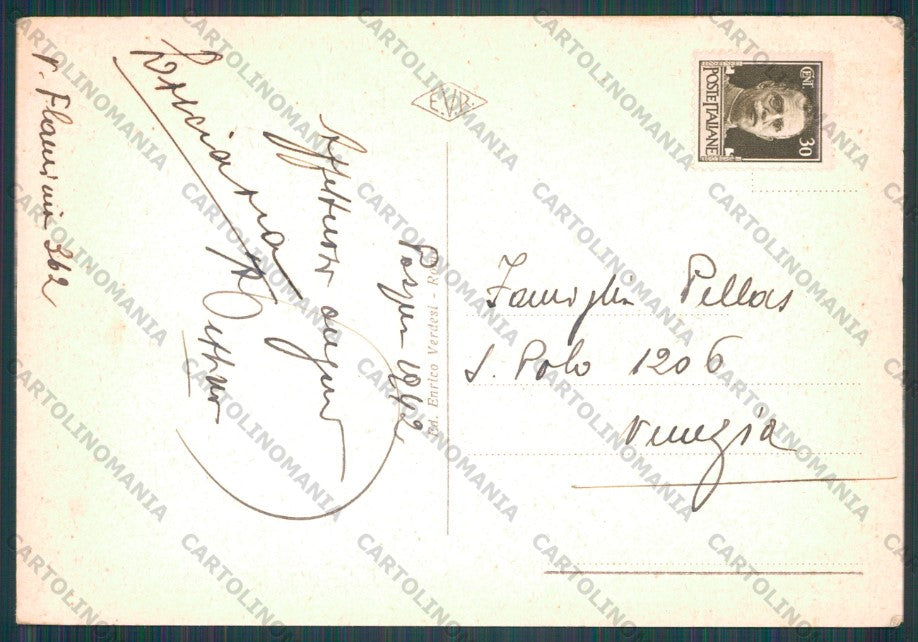 Pasqua 1942
Affettuosi auguri
v. Flaminia 362
E.V.R.
Ed. Enrico Verdesi - Roma
CENT 30
POSTE ITALIANE
Famiglia Pellas
S. Polo 1206
Venezia
CARTOLINOMANIA